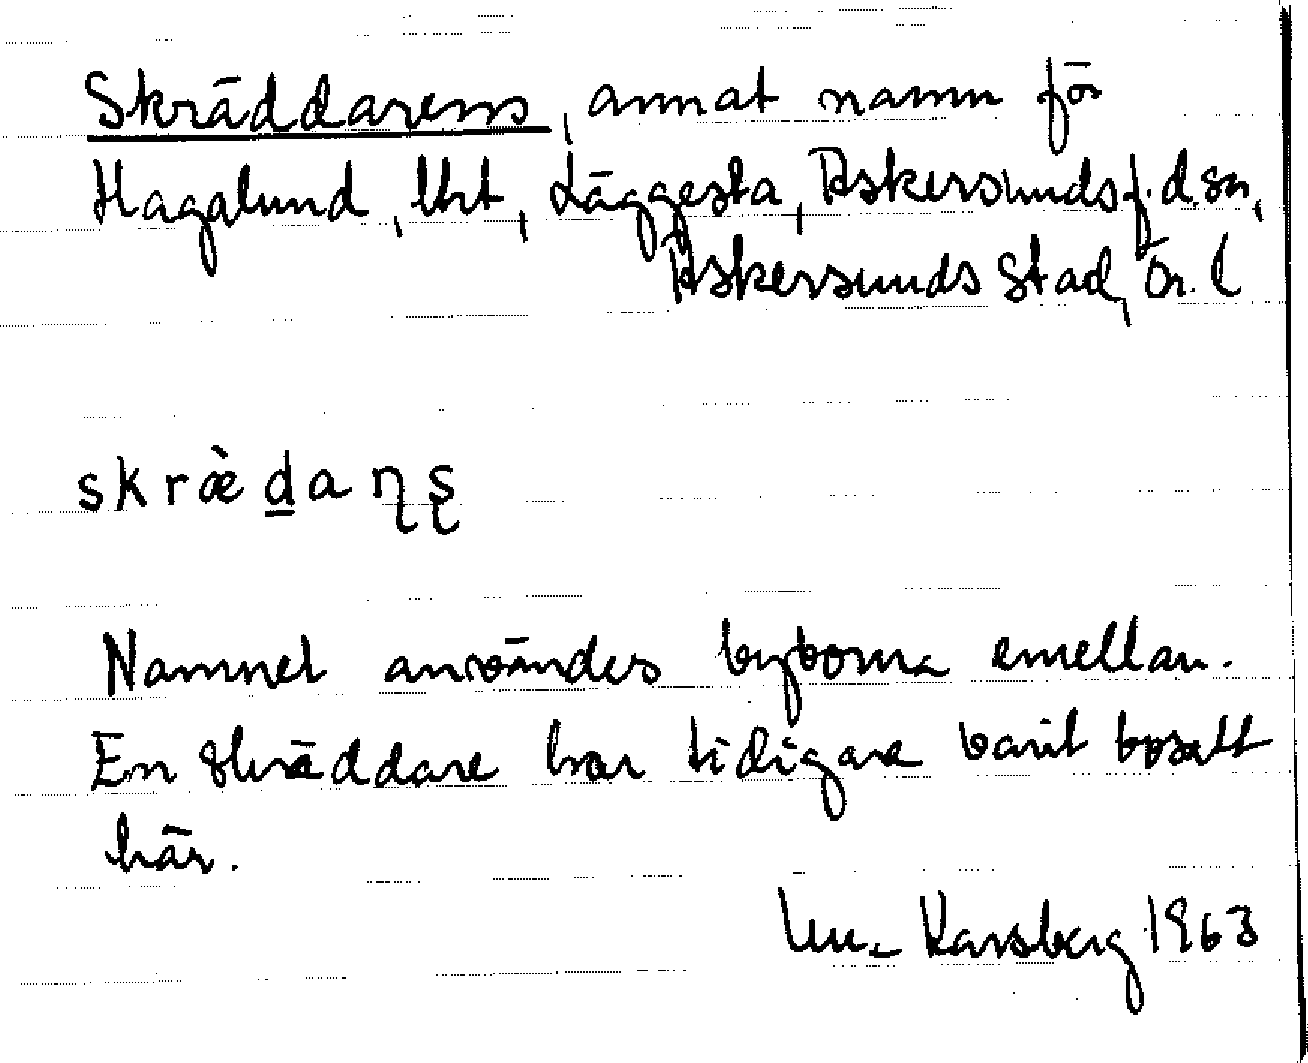 Skräddarens, annat namn för
Hagalund, lht, Läggesta, Askersunds f.d. sn,
Askersunds stad, Ör. l
skræ̀d̲aɳʂ
Namnet användes byborna emellan.
En skräddare har tidigare varit bosatt
här.
Karsberg 1963